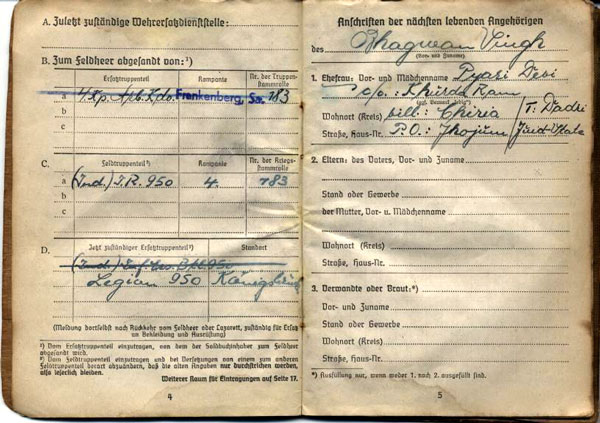 A. Zuletzt zuständige Wehrersatzdienststelle:
B. Zum Feldheer abgesandt von:¹)
Ersatztruppenteil
Kompanie
Nr. der Truppenstammrolle
a 4. Kp. Arb. Kdo. Frankenberg, Sa. 783
b
c
C. Feldtruppenteil²)
Kompanie
Nr. der Kriegsstammrolle
a (Ind.) I.R. 950 4. 783
b
c
D. Jetzt zuständiger Ersatztruppenteil²)
Standort
Legion 950 Königsbrück
(Meldung dortselbst nach Rückkehr vom Feldheer oder Lazarett, zuständig für Ersatz
an Bekleidung und Ausrüstung)
¹) Vom Ersatztruppenteil einzutragen, von dem der Soldbuchinhaber zum Feldheer
abgesandt wird.
²) Vom Feldtruppenteil einzutragen und bei Versetzungen von einem zum anderen
Feldtruppenteil derart abzuändern, daß die alten Angaben nur durchstrichen werden,
also leserlich bleiben.
Weiterer Raum für Eintragungen auf Seite 17.
4
Anschriften der nächsten lebenden Angehörigen
des Bhagwan Singh
(Vor- und Zuname)
1. Ehefrau: Vor- und Mädchenname Pyari Devi
c/o: Khurda Ram
(ggf. Vermerk „ledig“)
Wohnort (Kreis) vill: Chiria / T. Dadri
Straße, Haus-Nr. P.O.: Jhojun / Jind-State
2. Eltern: des Vaters, Vor- und Zuname
Stand oder Gewerbe
der Mutter, Vor- u. Mädchenname
Wohnort (Kreis)
Straße, Haus-Nr.
3. Verwandte oder Braut:*)
Vor- und Zuname
Stand oder Gewerbe
Wohnort (Kreis)
Straße, Haus-Nr.
*) Ausfüllung nur, wenn weder 1. noch 2. ausgefüllt sind.
5